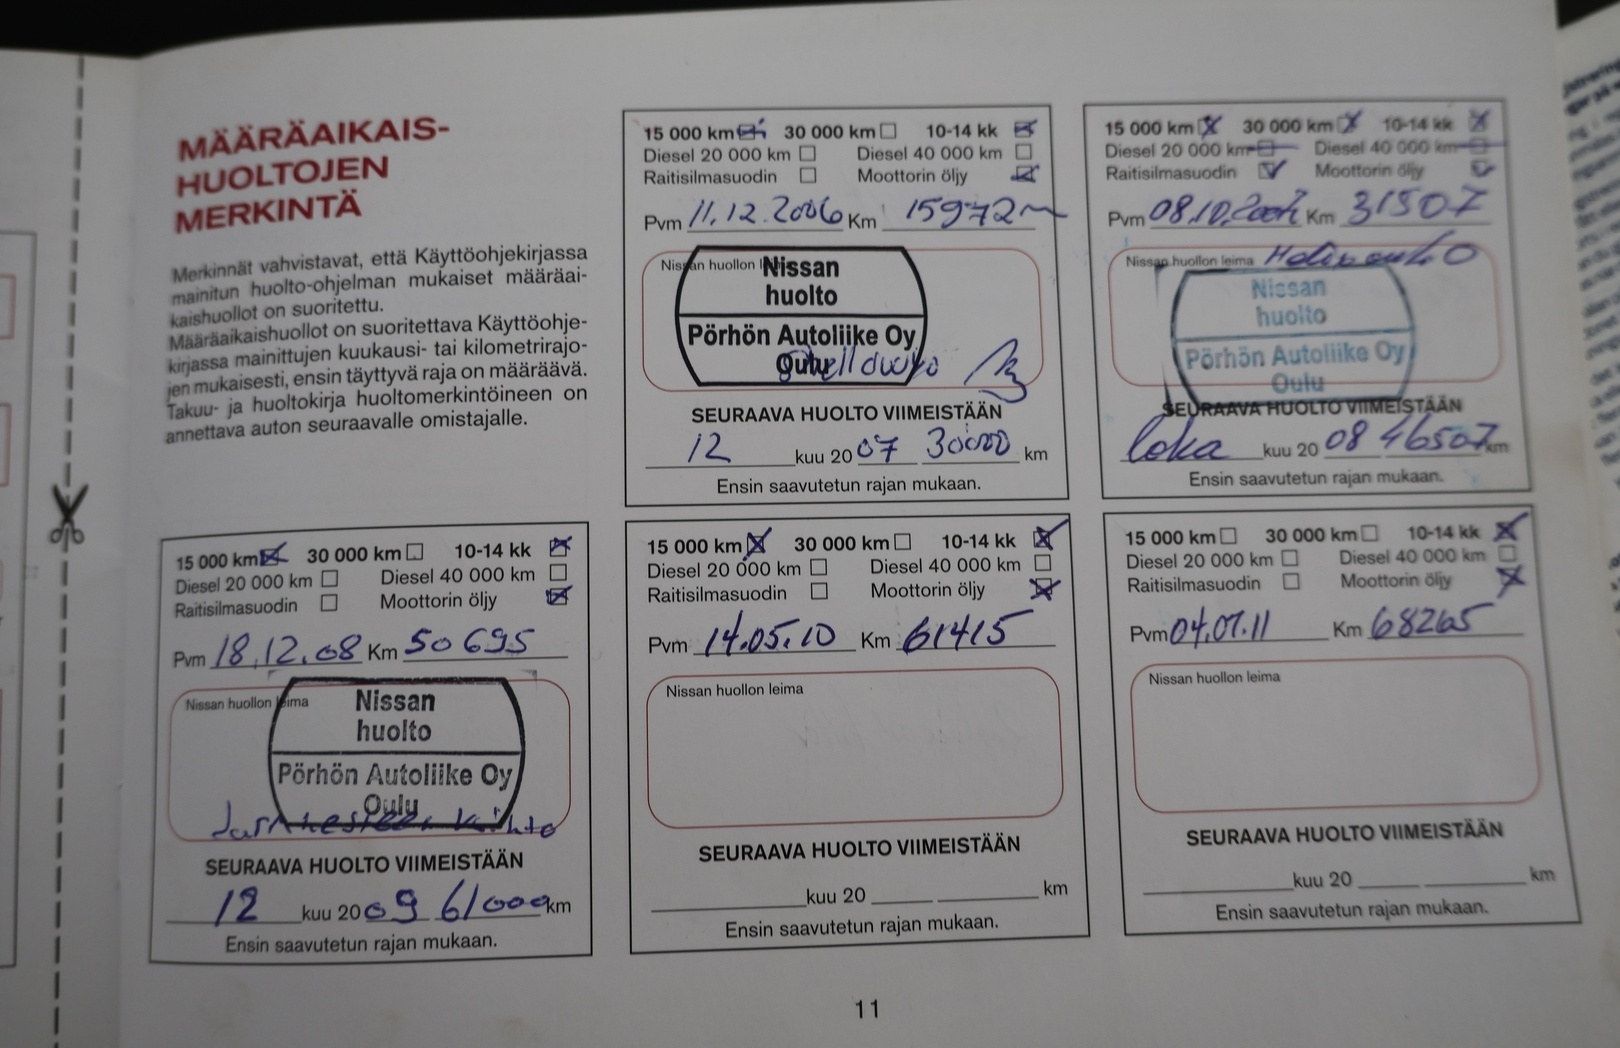 MÄÄRÄAIKAIS-
HUOLTOJEN
MERKINTÄ
Merkinnät vahvistavat, että Käyttöohjekirjassa
mainitun huolto-ohjelman mukaiset määräai-
kaishuollot on suoritettu.
Määräaikaishuollot on suoritettava Käyttöohje-
kirjassa mainittujen kuukausi- tai kilometrirajo-
jen mukaisesti, ensin täyttyvä raja on määräävä.
Takuu- ja huoltokirja huoltomerkintöineen on
annettava auton seuraavalle omistajalle.
15 000 km 30 000 km 10-14 kk
Diesel 20 000 km Diesel 40 000 km
Raitisilmasuodin Moottorin öljy
Pvm 11.12.2006 Km 15972
Nissan huollon leima
Nissan
huolto
Pörhön Autoliike Oy
Oulu
SEURAAVA HUOLTO VIIMEISTÄÄN
12 kuu 20 07 30000 km
Ensin saavutetun rajan mukaan.
15 000 km 30 000 km 10-14 kk
Diesel 20 000 km Diesel 40 000 km
Raitisilmasuodin Moottorin öljy
Pvm 08.10.2007 Km 31507
Nissan huollon leima
Nissan
huolto
Pörhön Autoliike Oy
Oulu
SEURAAVA HUOLTO VIIMEISTÄÄN
loka kuu 20 08 46507 km
Ensin saavutetun rajan mukaan.
15 000 km 30 000 km 10-14 kk
Diesel 20 000 km Diesel 40 000 km
Raitisilmasuodin Moottorin öljy
Pvm 18.12.08 Km 50695
Nissan huollon leima
Nissan
huolto
Pörhön Autoliike Oy
Oulu
Jarrunesteen vaihto
SEURAAVA HUOLTO VIIMEISTÄÄN
12 kuu 20 09 61000 km
Ensin saavutetun rajan mukaan.
15 000 km 30 000 km 10-14 kk
Diesel 20 000 km Diesel 40 000 km
Raitisilmasuodin Moottorin öljy
Pvm 14.05.10 Km 61415
Nissan huollon leima
SEURAAVA HUOLTO VIIMEISTÄÄN
kuu 20 km
Ensin saavutetun rajan mukaan.
15 000 km 30 000 km 10-14 kk
Diesel 20 000 km Diesel 40 000 km
Raitisilmasuodin Moottorin öljy
Pvm 04.07.11 Km 68265
Nissan huollon leima
SEURAAVA HUOLTO VIIMEISTÄÄN
kuu 20 km
Ensin saavutetun rajan mukaan.
11